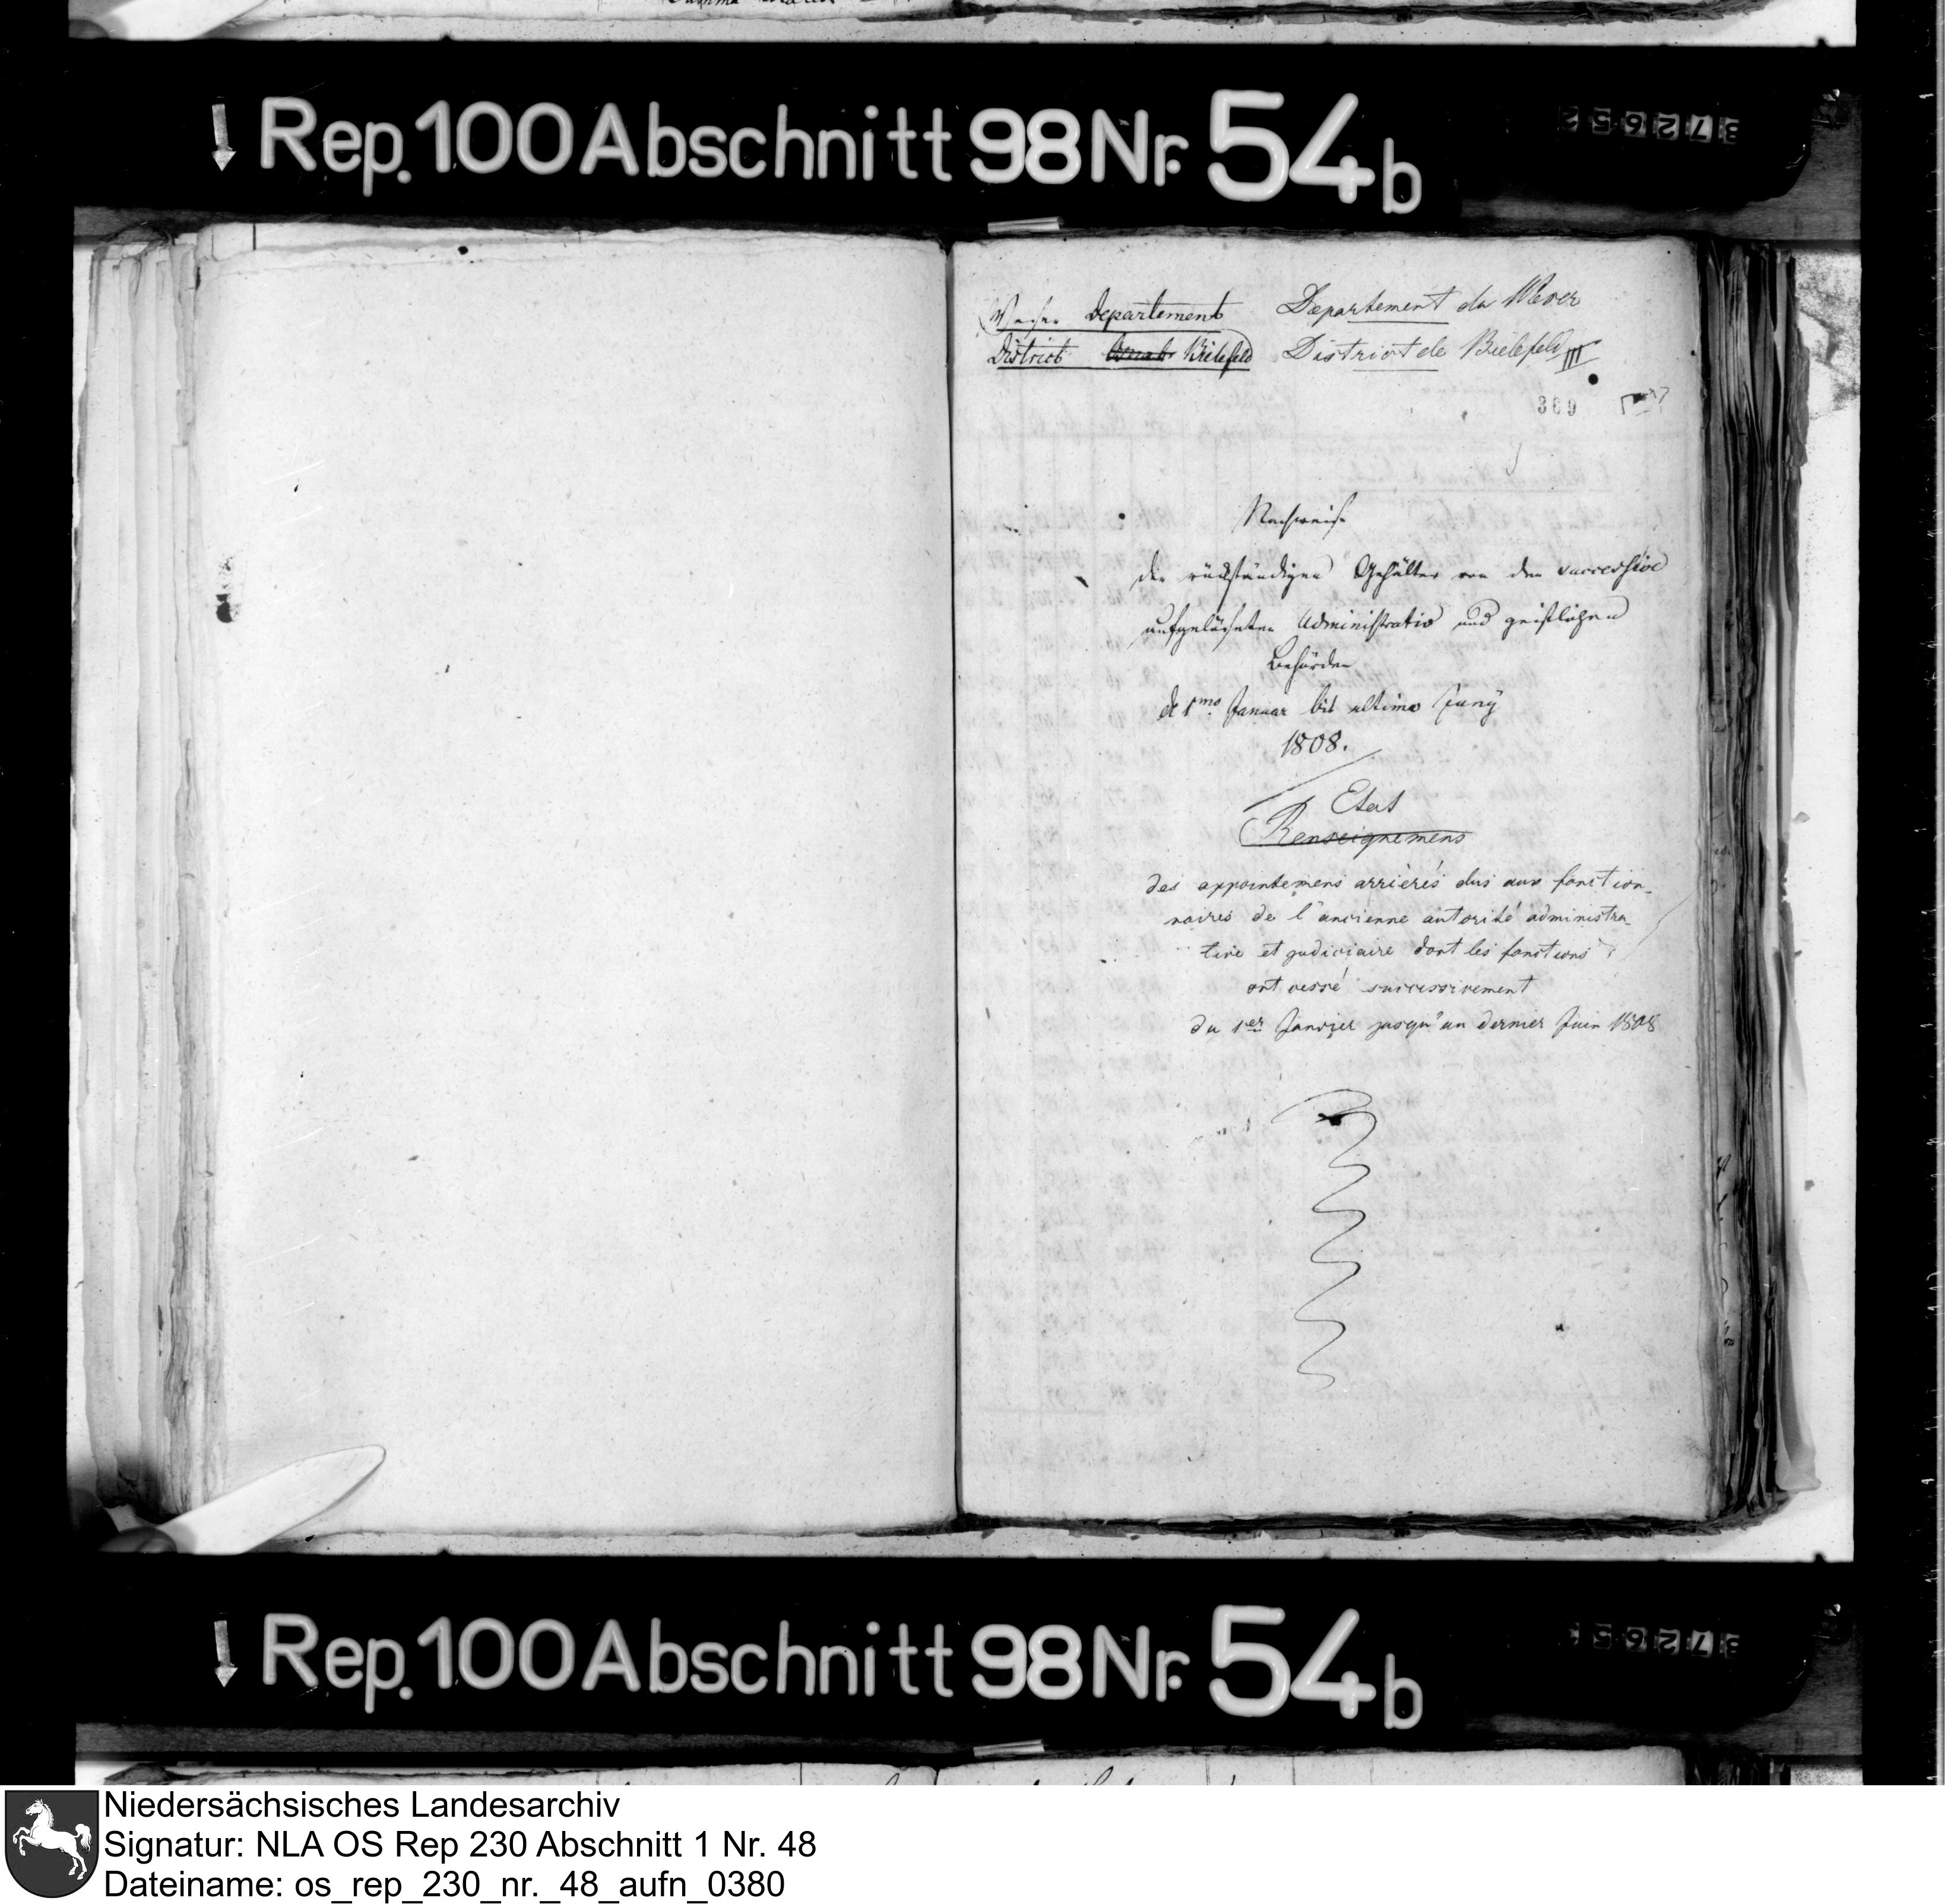 Rep. 100 Abschnitt 98 Nr. 54 b
372652
Weser Departement
District Osnab. Bielefeld
Departement du Weser
District de Bielefeld III
369
Nachweise
der rückständigen Gehälter von den successive
aufgelöseten Administrativ und geistlichen
Behörden
de 1mo Januar bis ultimo Juny
1808.
Etat
Renseignemens
des appointemens arriérés dus aux fonction-
naires de l'ancienne autorité administra-
tive et judiciaire dont les fonctions
ont cessé successivement
du 1er Janvier jusqu'au dernier Juin 1808
Rep. 100 Abschnitt 98 Nr. 54 b
Niedersächsisches Landesarchiv
Signatur: NLA OS Rep 230 Abschnitt 1 Nr. 48
Dateiname: os_rep_230_nr._48_aufn_0380